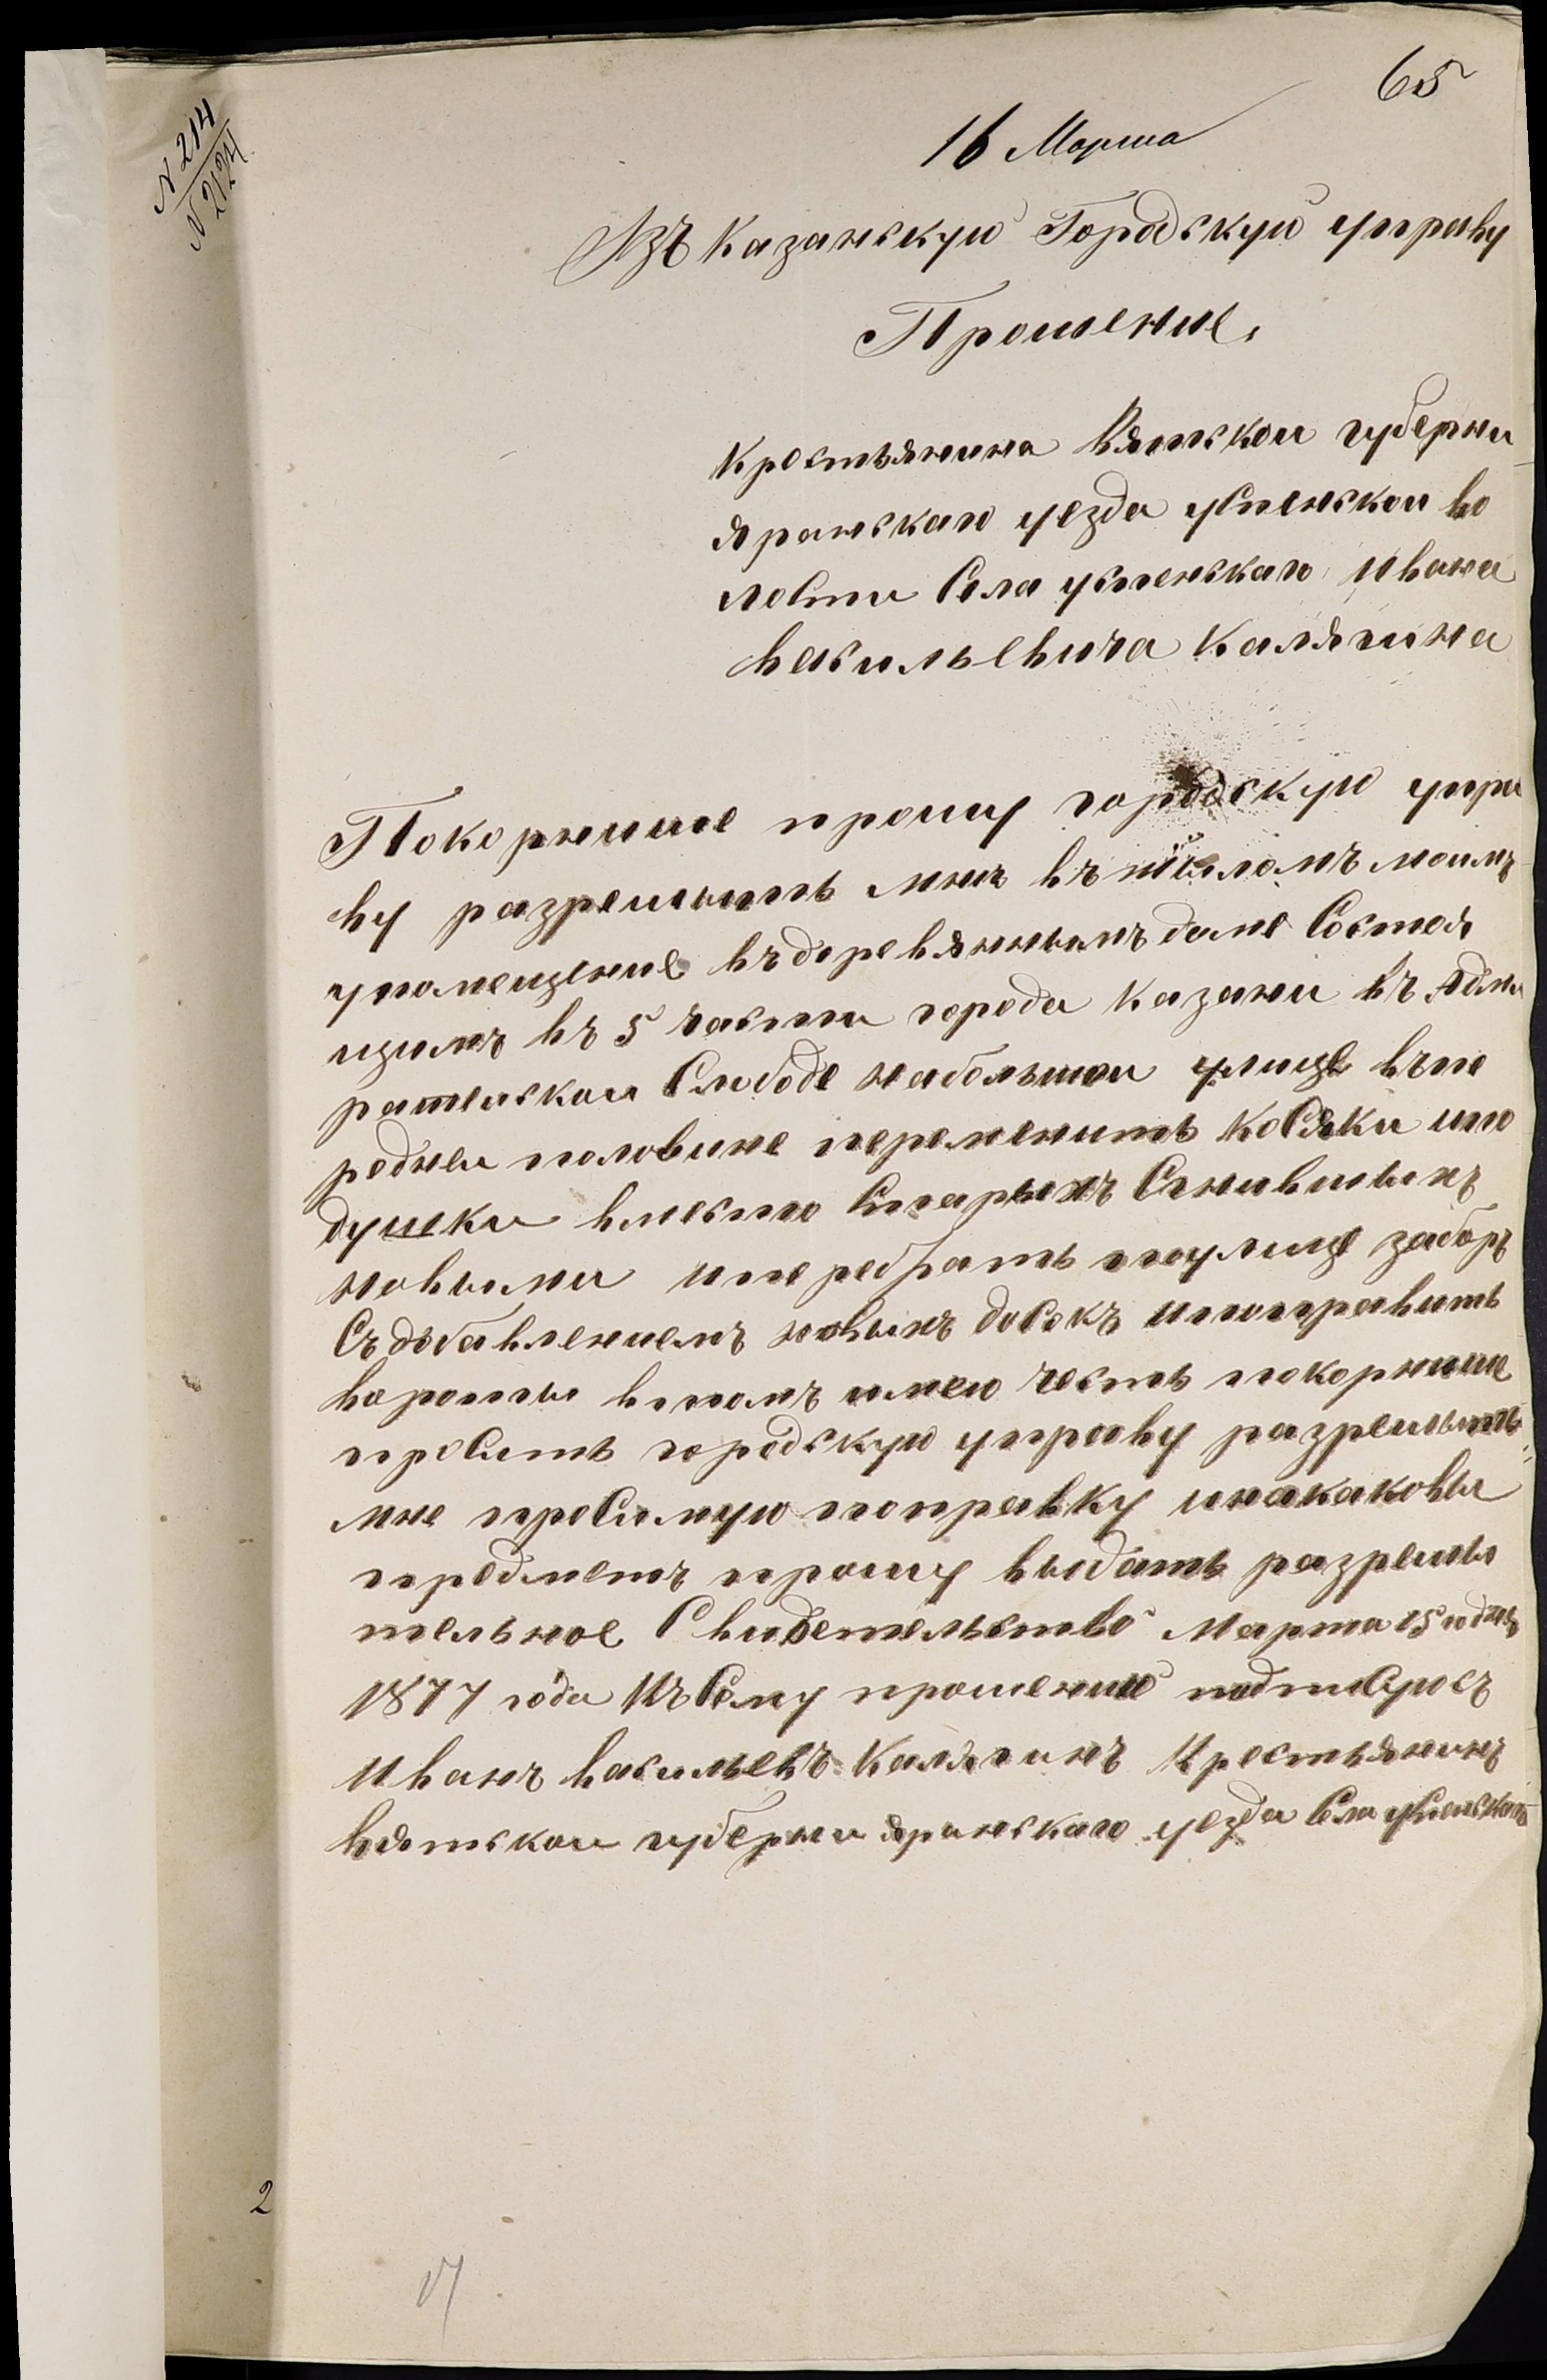 65
16 Марта
N 214
Въ Казанскую Городскую управу
Прошение.
Крестьянина Вятской губерни
яранскаго уезда успенской во
лости Села успенскаго Ивана
васильевича Калягина
Покорнише прошу городскую упра
ву разрешыть мне въ жиломъ моимъ
упомещение въ деревянныъмъ доме Состоя
щимъ въ 5 части города Казани въ Адми
ратейской Слободе на большой улице въпе
редней половине переменить Косяки ипо
душки вместо Старыхъ Сгнившыхъ
новыми иперебрать поулице заборъ
Съ добавлениемъ новыхъ досокъ ипоправить
вороты втомъ имею честь покорнише
просить городскую управу разрешыть
мне просимую поправку инакаковы
предметъ прошу выдать разрешы
тельное Свидетельство Марта 15 дня
1877 года Къ Сему прошению подписуюсъ
Иванъ васильевъ Калягинъ Крестьянинъ
вятской губерни яранскаго уезда Села успенскаго
2